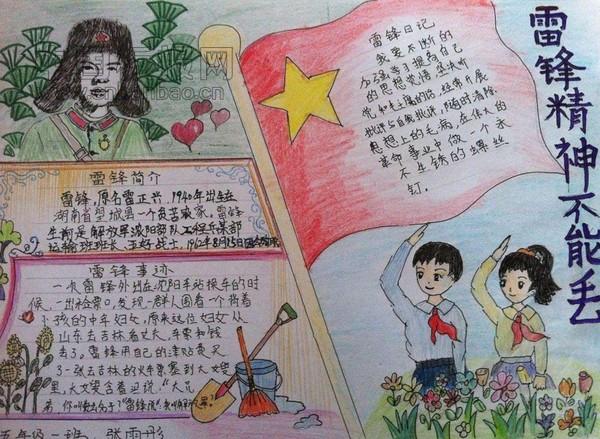 雷锋精神不能丢
雷锋日记
我要不断的
加强学习提高自己
的思想觉悟,坚决听
党和毛主席的话,经常开展
批评与自我批评,随时清除
思想上的毛病,在伟大的
革命事业中做一个永
不生锈的螺丝
钉.
雷锋简介
雷锋,原名雷正兴,1940年出生在
湖南省望城县一个贫苦农家.雷锋
生前是解放军沈阳部队工程兵某部
运输班班长、五好战士,1962年8月15日
雷锋事迹
一次雷锋外出在沈阳车站换车的时
候,一出检票口,发现一群人围着一个背着
小孩的中年妇女,原来这位妇女从
山东去吉林看丈夫,车票和钱
丢了.雷锋用自己的津贴费买
了一张去吉林的火车票塞到大嫂
里,大嫂含着泪说:"大兄
弟,你叫
五年级一班 张雨彤